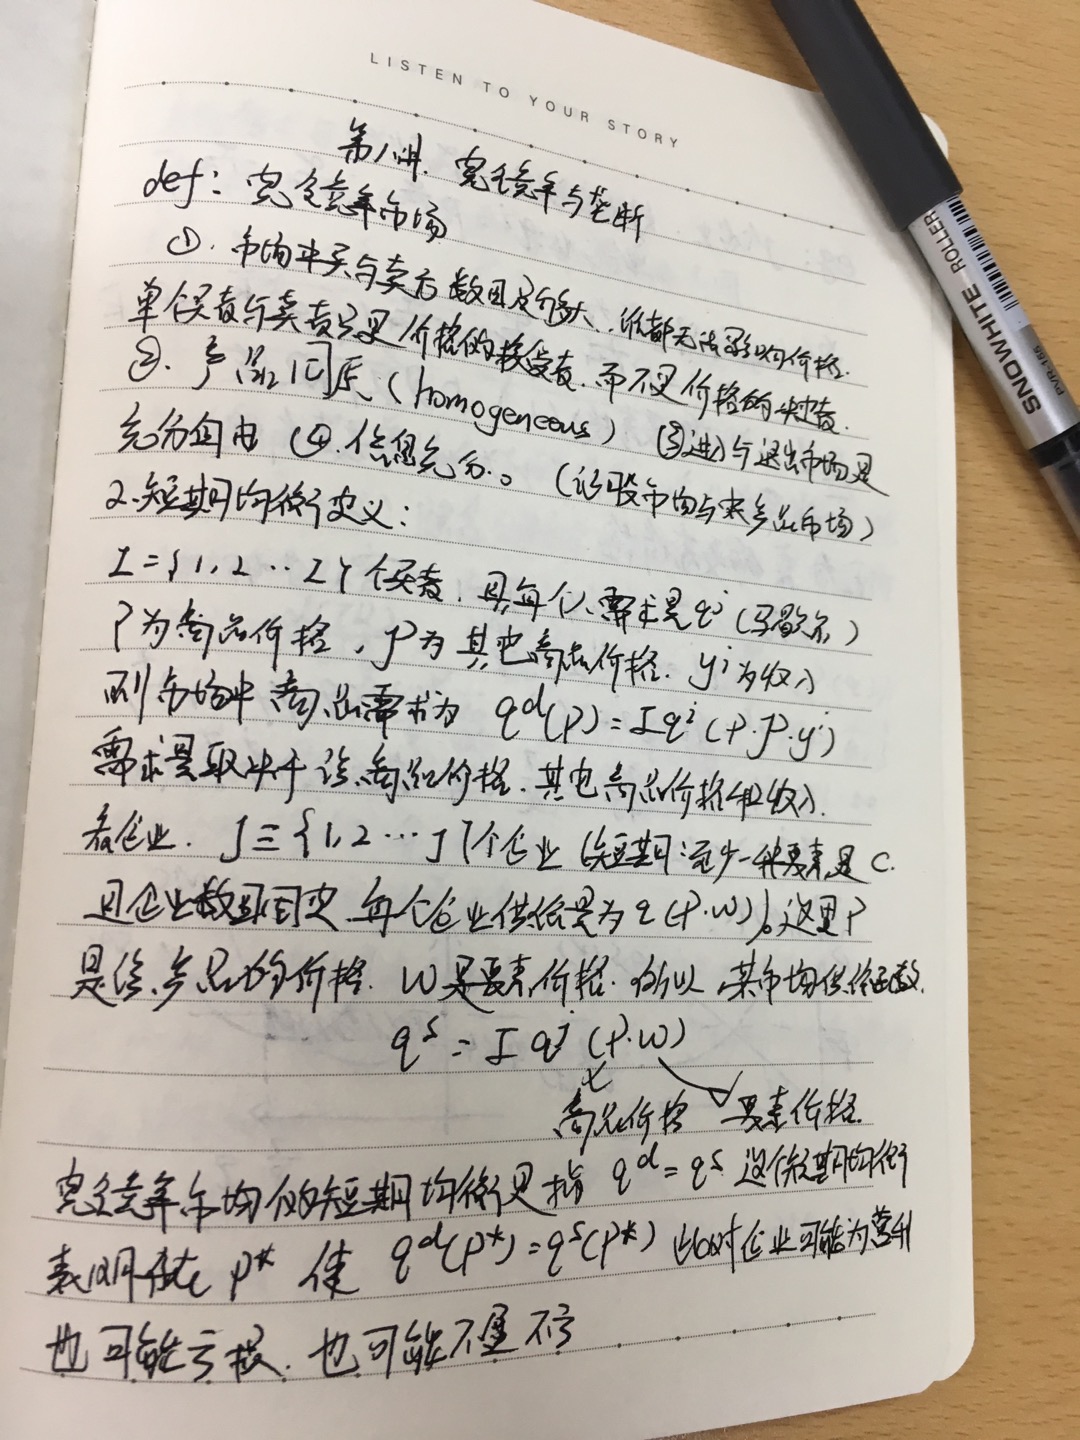 LISTEN TO YOUR STORY
第八讲. 完全竞争与垄断
def: 完全竞争市场
①. 市场中买与卖方数目足够大、谁都无法影响价格.
单个买者与卖者只是价格的接受者. 而不是价格的决定者.
②. 产品同质 (homogeneous) ③进入与退出市场是
充分自由 ④. 信息充分。 (证股市场与农产品市场)
2. 短期均衡定义:
I={1,2 ·· I} 个买者. 且每个人需求是 qⁱ (马歇尔)
P为商品价格, P为其它商品价格. yⁱ为收入
则市场中商品需求为 qᵈ(P)=Σqⁱ(P·P·yⁱ)
需求量取决于该商品价格. 其它商品价格和收入.
若企业. J≡{1,2 ··· J}个企业 (短期: 至少一种要素是 C.
且企业数目固定. 每个企业供给量为 q(P·W))。这里P
是该产品的价格. W是要素价格. 所以, 某市场供给函数.
qˢ = Σ qʲ (P·W)
商品价格 要素价格.
完全竞争市场的短期均衡是指 qᵈ = qˢ 这个短期均衡
表明存在 P* 使 qᵈ(P*)=qˢ(P*) 此时企业可能为盈利
也可能亏损. 也可能不盈不亏
SNOWHITE ROLLER
PVR-155